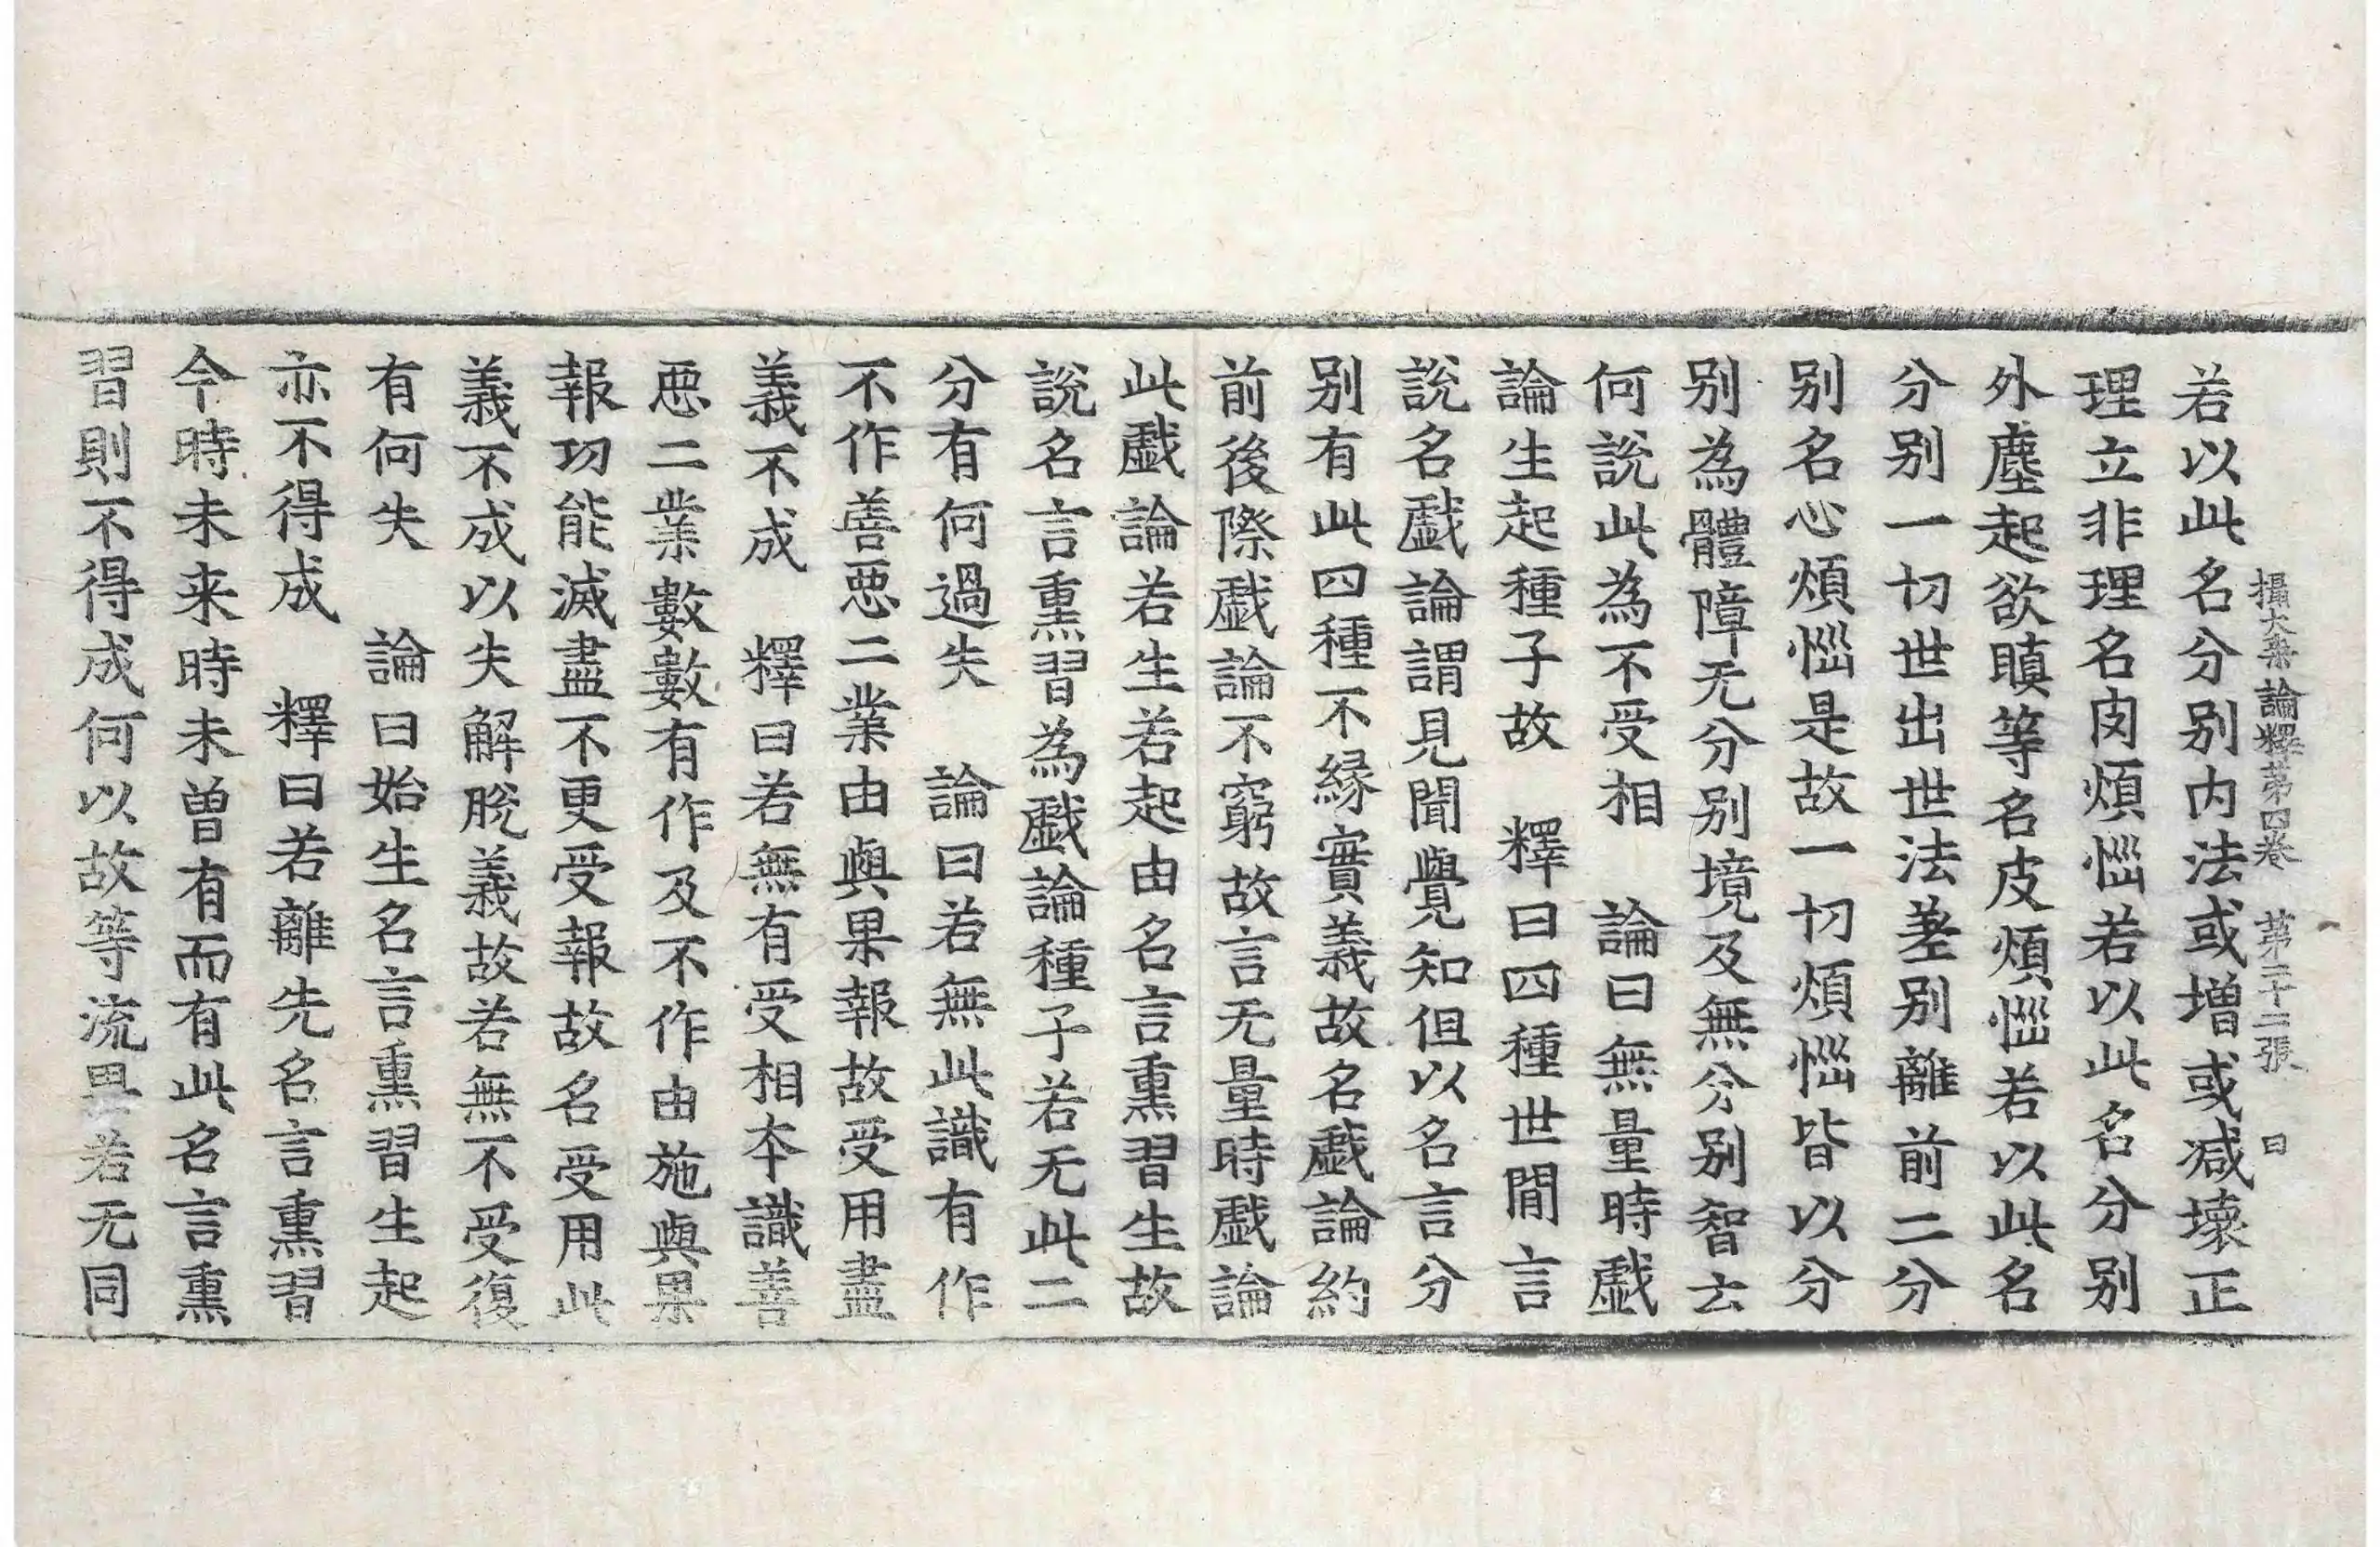 攝大乗論釋苐四卷 苐二十二張 曰
若以此名分别内法或増或减壞正
理立非理名肉煩惱若以此名分别
外塵起欲瞋等名皮煩惱若以此名
分别一切世出世法差别離前二分
别名心煩惱是故一切煩惱皆以分
别為體障无分别境及無分别智云
何說此為不受相 論曰無量時戲
論生起種子故 釋曰四種世間言
說名戲論謂見聞覺知但以名言分
别有此四種不縁實義故名戲論約
前後際戲論不窮故言无量時戲論
此戲論若生若起由名言熏習生故
說名言熏習為戲論種子若无此二
分有何過失 論曰若無此識有作
不作善惡二業由與果報故受用盡
義不成 釋曰若無有受相本識善
惡二業數數有作及不作由施與果
報功能滅盡不更受報故名受用此
義不成以失解脫義故若無不受復
有何失 論曰始生名言熏習生起
亦不得成 釋曰若離先名言熏習
今時未来時未曽有而有此名言熏
習則不得成何以故等流果若无同